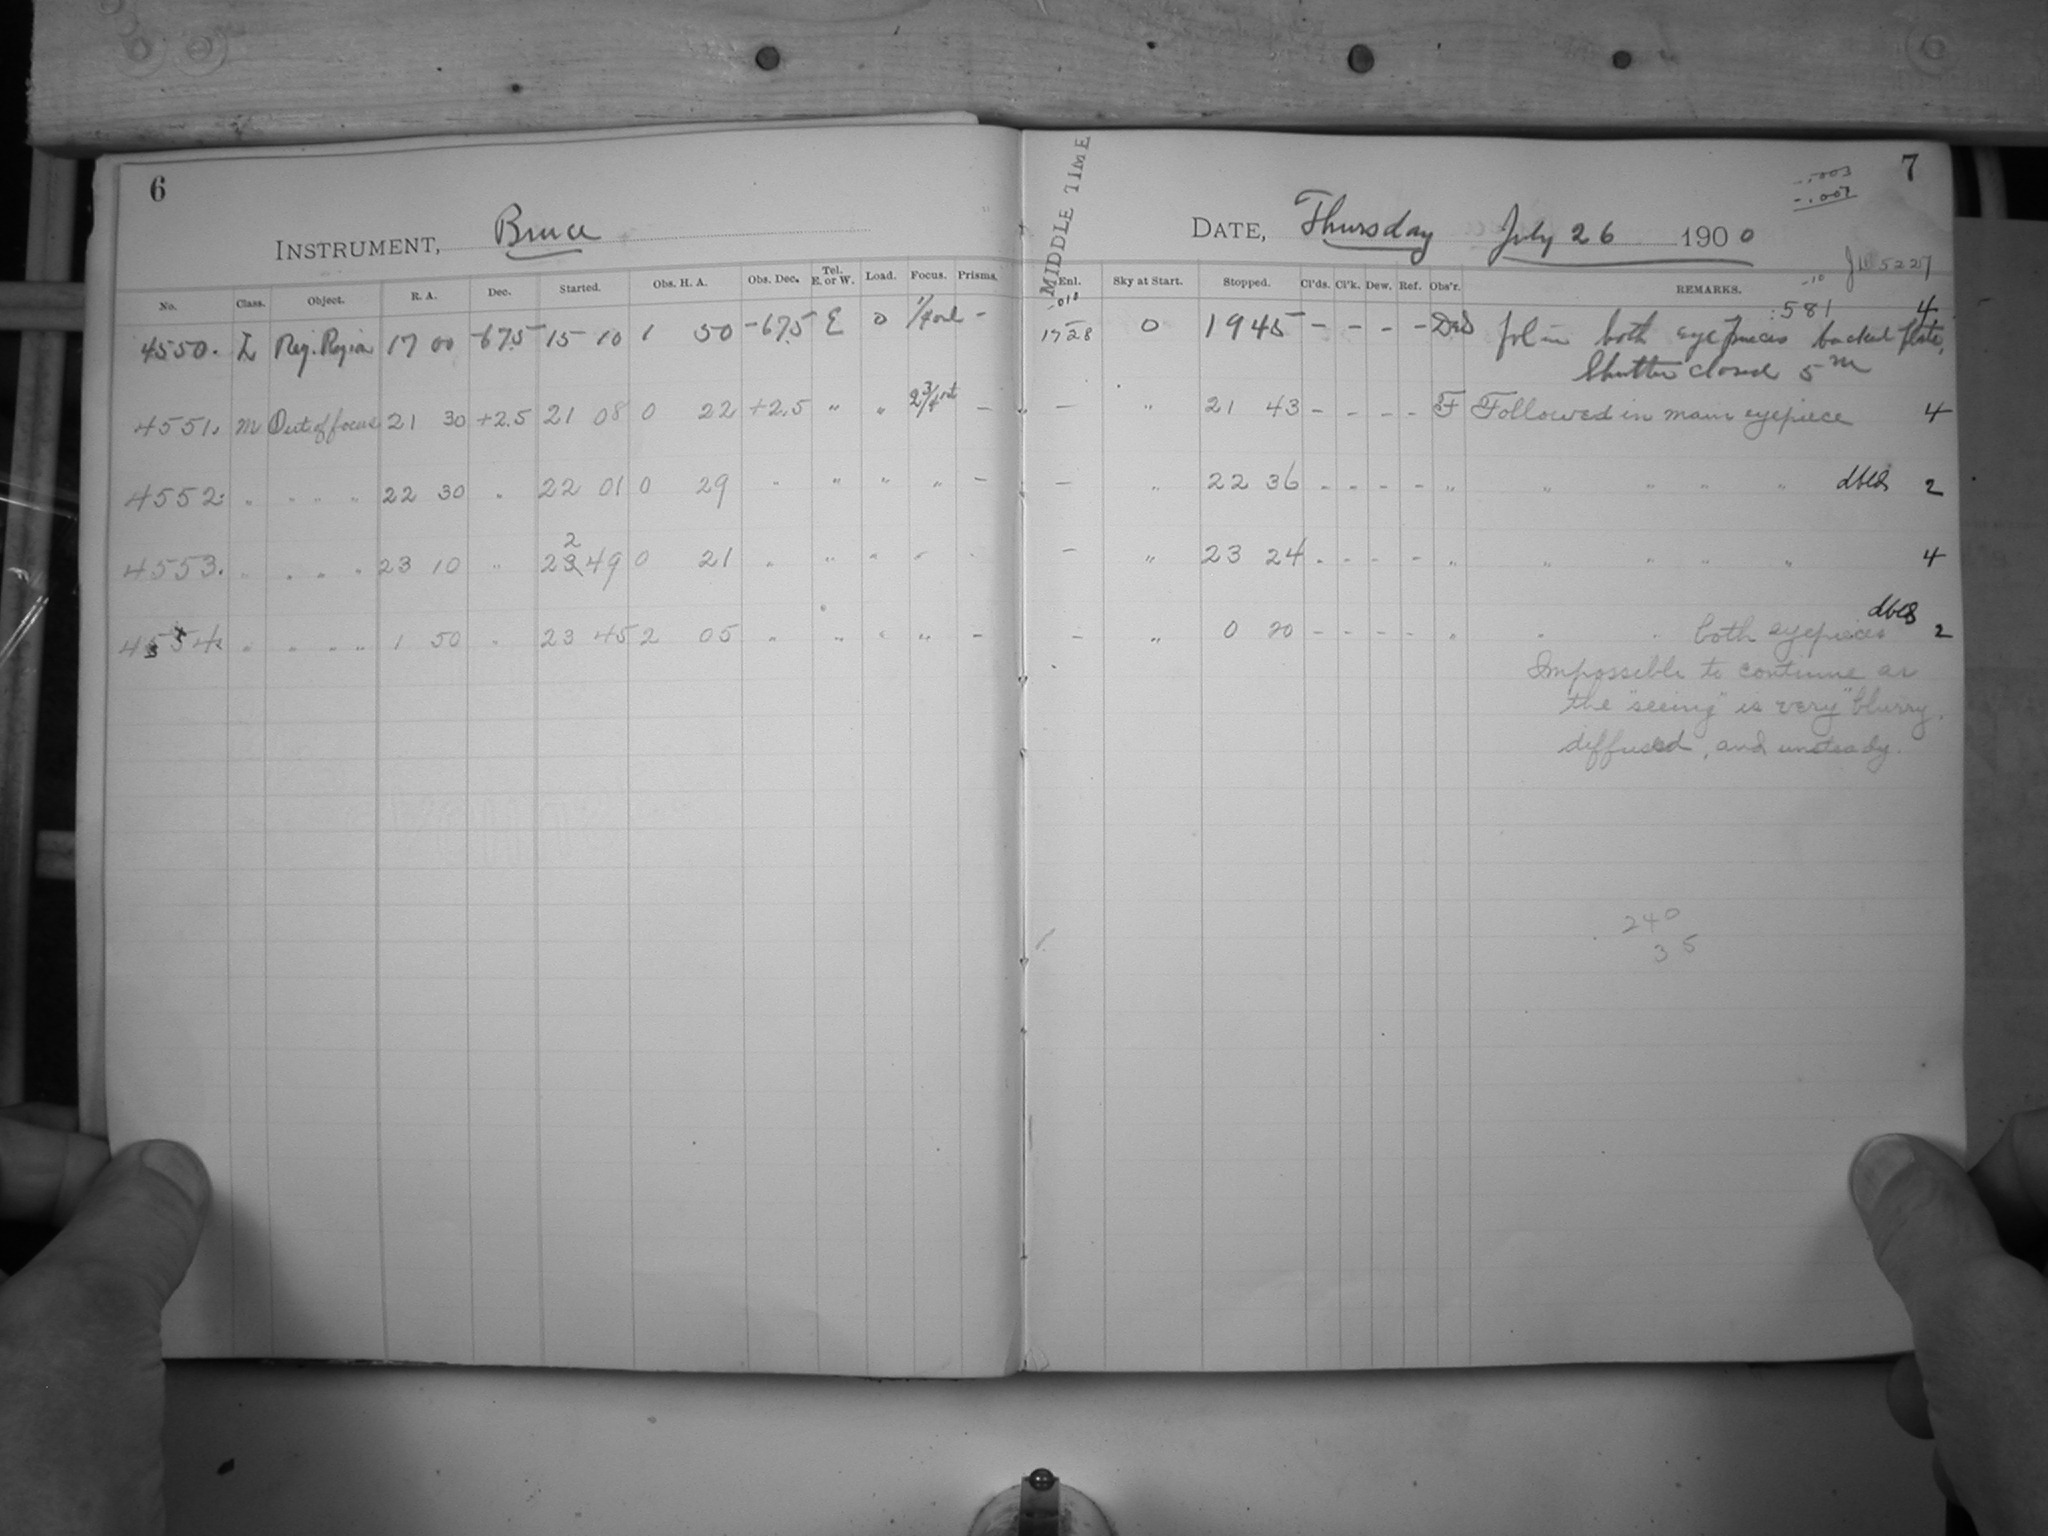 6
INSTRUMENT, Bruce
No. Class. Object. R. A. Dec. Started. Obs. H. A. Obs. Dec. Tel. E. or W. Load. Focus. Prisms.
4550. L Reg. Region 17 00 -67.5 15 10 1 50 -67.5 E 0 -
4551. M Out of focus 21 30 +2.5 21 08 0 22 +2.5 " " 2 3/4 out -
4552. " " " " 22 30 " 22 01 0 29 " " " " -
2
4553. " " " " 23 10 " 23 49 0 21 " " " " -
4554. " " " " 1 50 " 23 45 2 05 " " " " -
7
-.003
-.007
MIDDLE TIME
DATE, Thursday July 26 1900
JW 5227
Enl. Sky at Start. Stopped. Cl'ds. Cl'k. Dew. Ref. Obs'r. REMARKS.
-10
-010 :581 4
17 28 0 19 45 - - - - fol in both eyepieces backed plate,
Shutter closed 5m
— " 21 43 - - - - F Followed in main eyepiece 4
— " 22 36 - - - - " " " " " dbld 2
— " 23 24 - - - - " " " " " 4
dbld
— " 0 20 - - - - " " " both eyepieces 2
Impossible to continue as
the "seeing" is very blurry,
diffused, and unsteady.
240
35